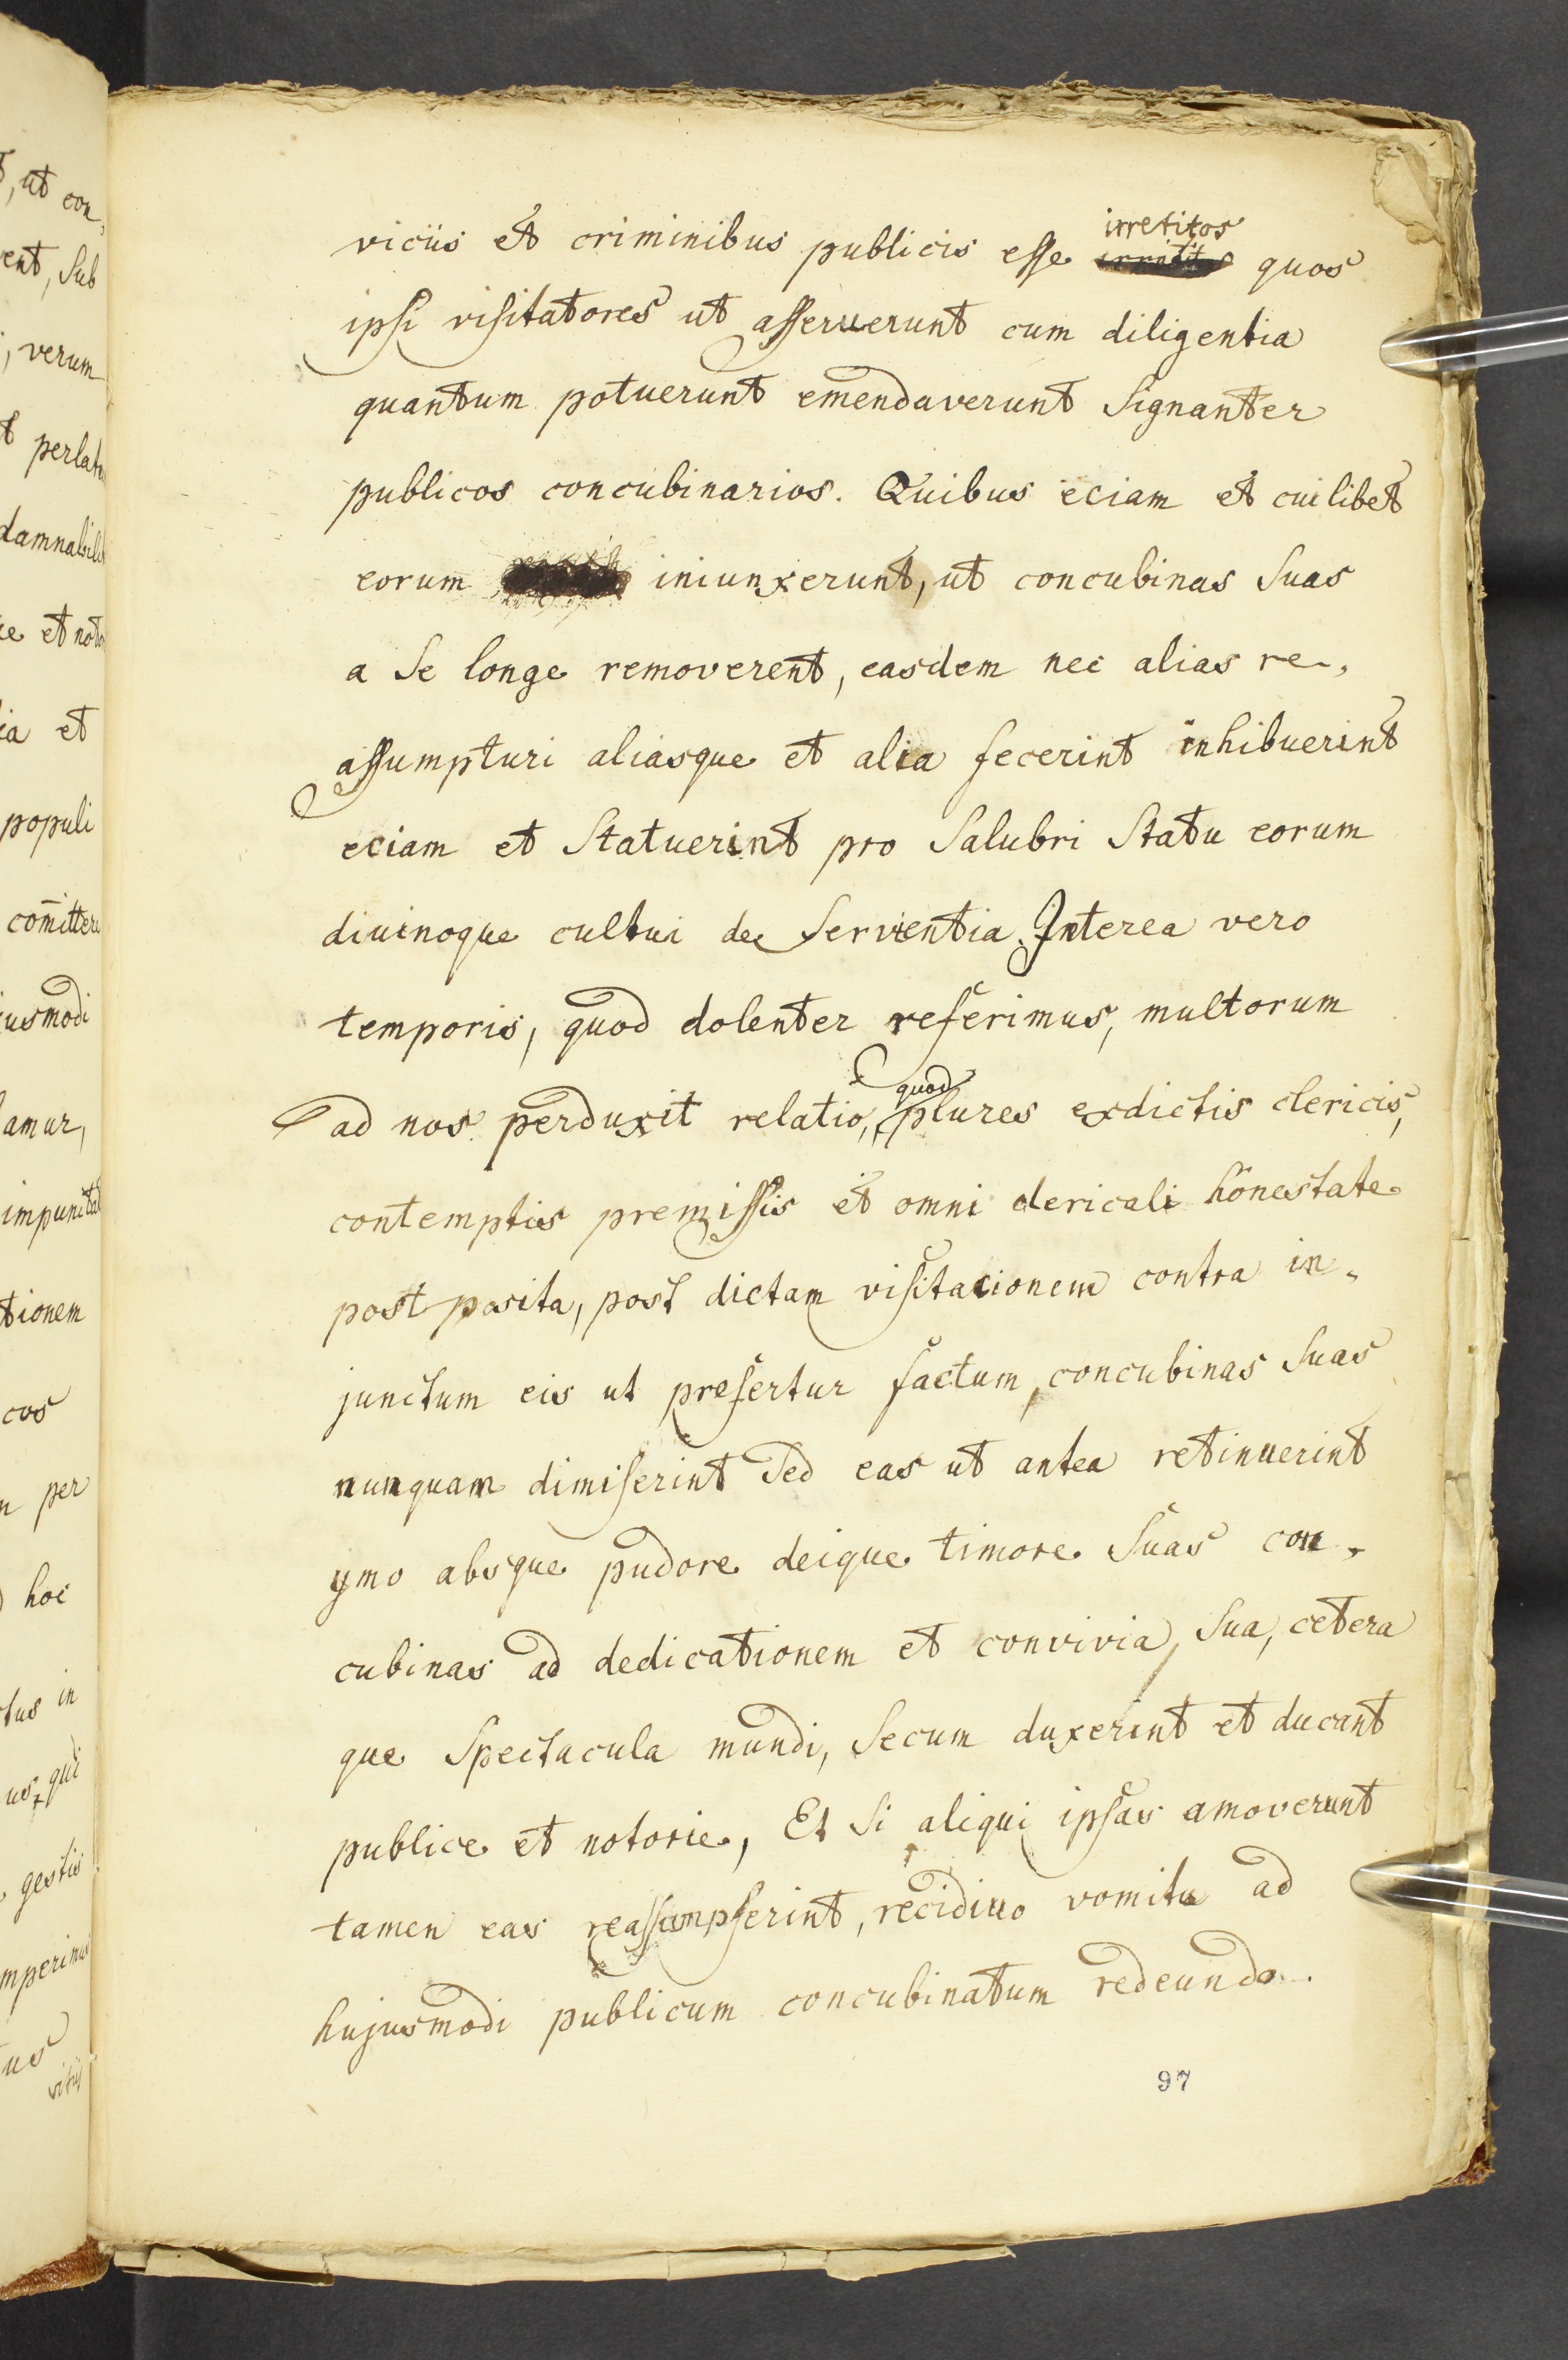 viciis et criminibus publicis esse irretitos quos
ipsi visitatores ut asseruerunt cum diligentia
quantum potuerunt emendaverunt signanter
publicos concubinarios. Quibus eciam et cuilibet
eorum iniunxerunt, ut concubinas suas
a se longe removerent, easdem nec alias re-,
assumpturi aliasque et alia fecerint inhibuerint
eciam et statuerint pro salubri statu eorum
divinoque cultui deservientia. Interea vero
temporis, quod dolenter referimus, multorum
ad nos perduxit relatio, quod plures ex dictis clericis,
contemptis premissis et omni clericali honestate
post posita, post dictam visitacionem contra in-
junctum eis ut prefertur factum, concubinas suas
nunquam dimiserint sed eas ut antea retinuerint
ymo absque pudore deique timore suas con-
cubinas ad dedicationem et convivia, sua, cetera
que spectacula mundi, secum duxerint et ducant
publice et notorie, Et si aliqui ipsas amoverunt
tamen eas reassumpserint, recidiuo vomitu ad
hujusmodi publicum concubinatum redeundo.
97